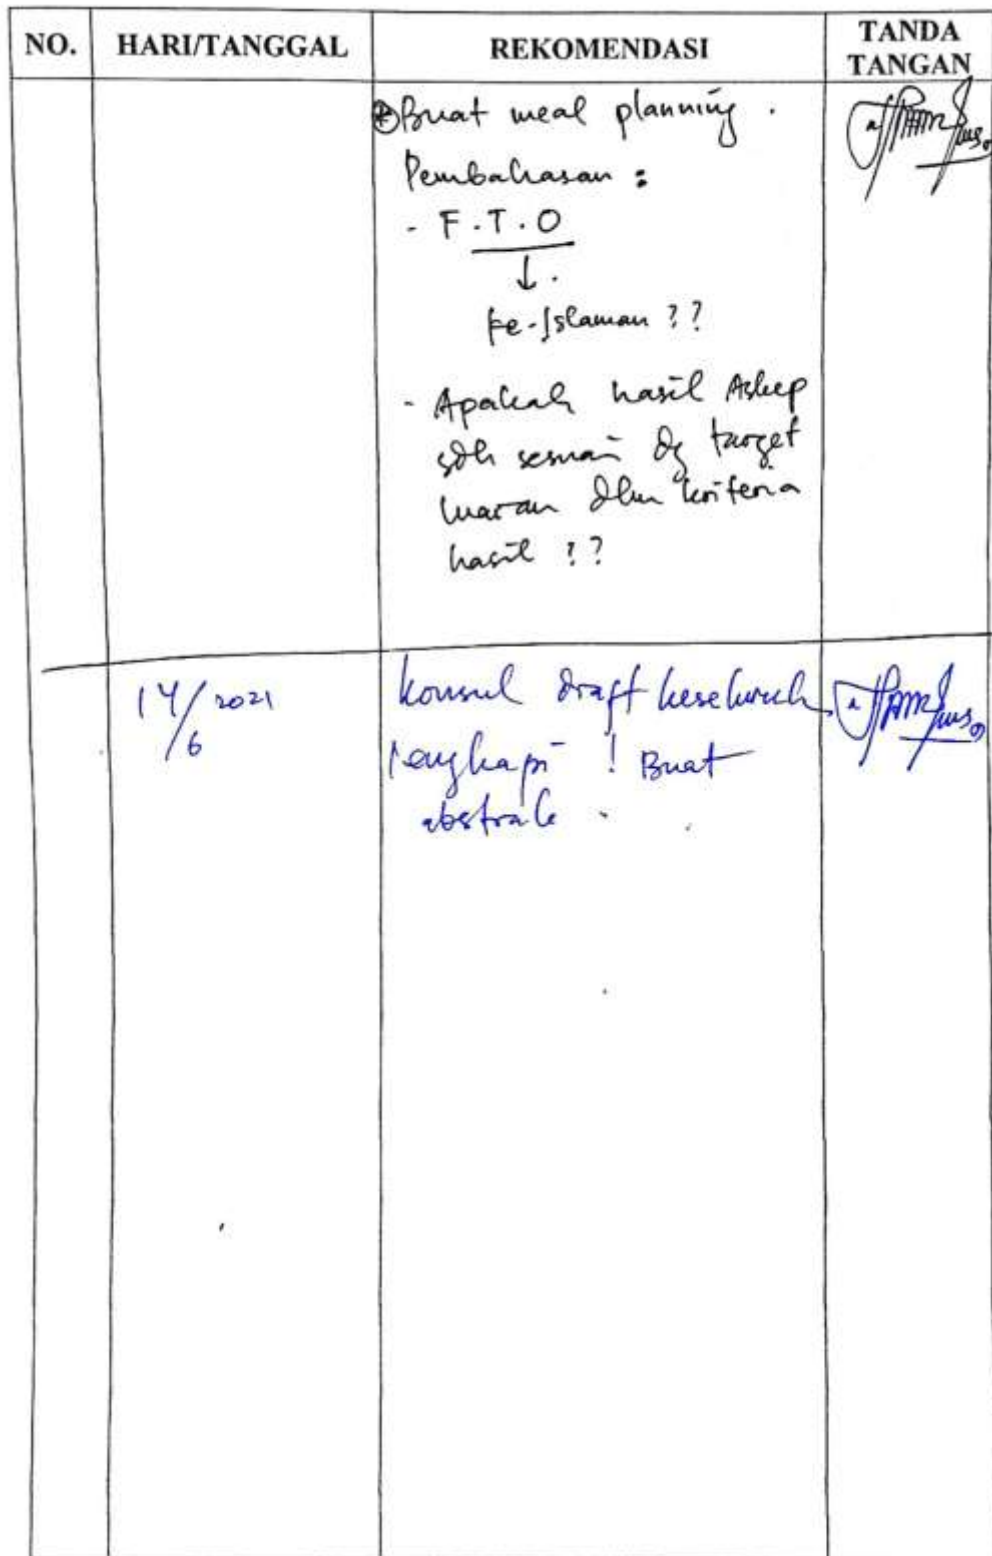 NO. HARI/TANGGAL REKOMENDASI TANDA TANGAN
⊕ Buat meal planning .
Pembahasan :
- F.T.O
↓ .
ke-Islaman ??
- Apakah hasil Askep
sdh sesuai dg target
luaran dlm kriteria
hasil ??
14/6 2021 konsul draft keseluruh
lengkapi ! Buat
abstrak .